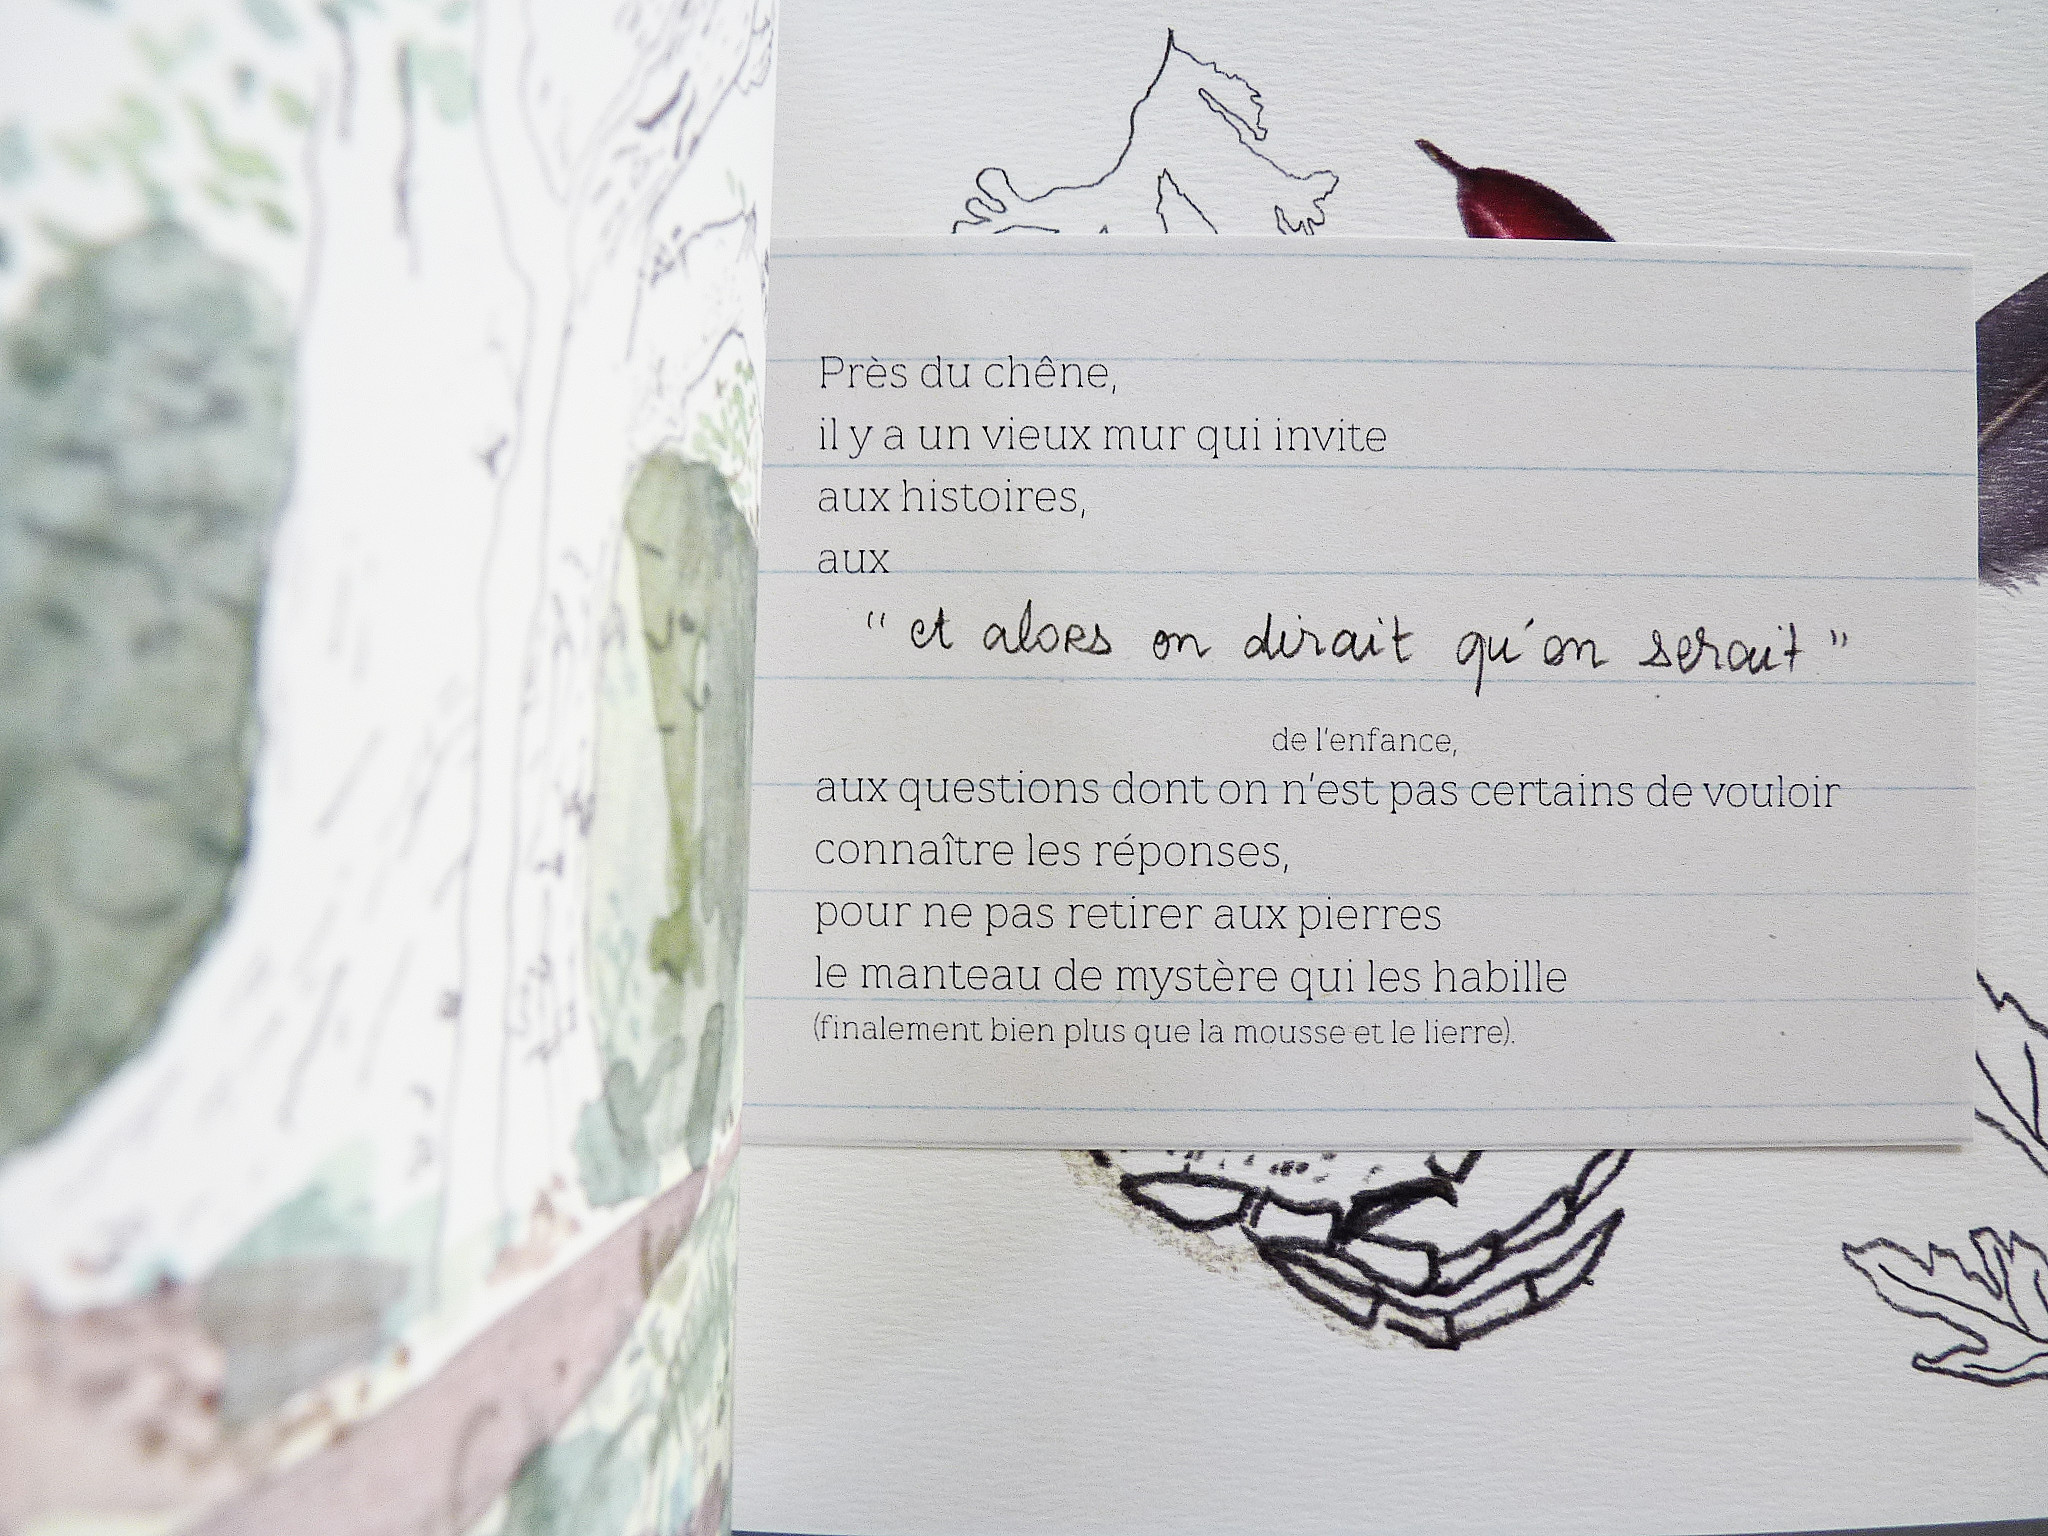 Près du chêne,
il y a un vieux mur qui invite
aux histoires,
aux
“ et alors on dirait qu'on serait ”
de l'enfance,
aux questions dont on n'est pas certains de vouloir
connaître les réponses,
pour ne pas retirer aux pierres
le manteau de mystère qui les habille
(finalement bien plus que la mousse et le lierre).